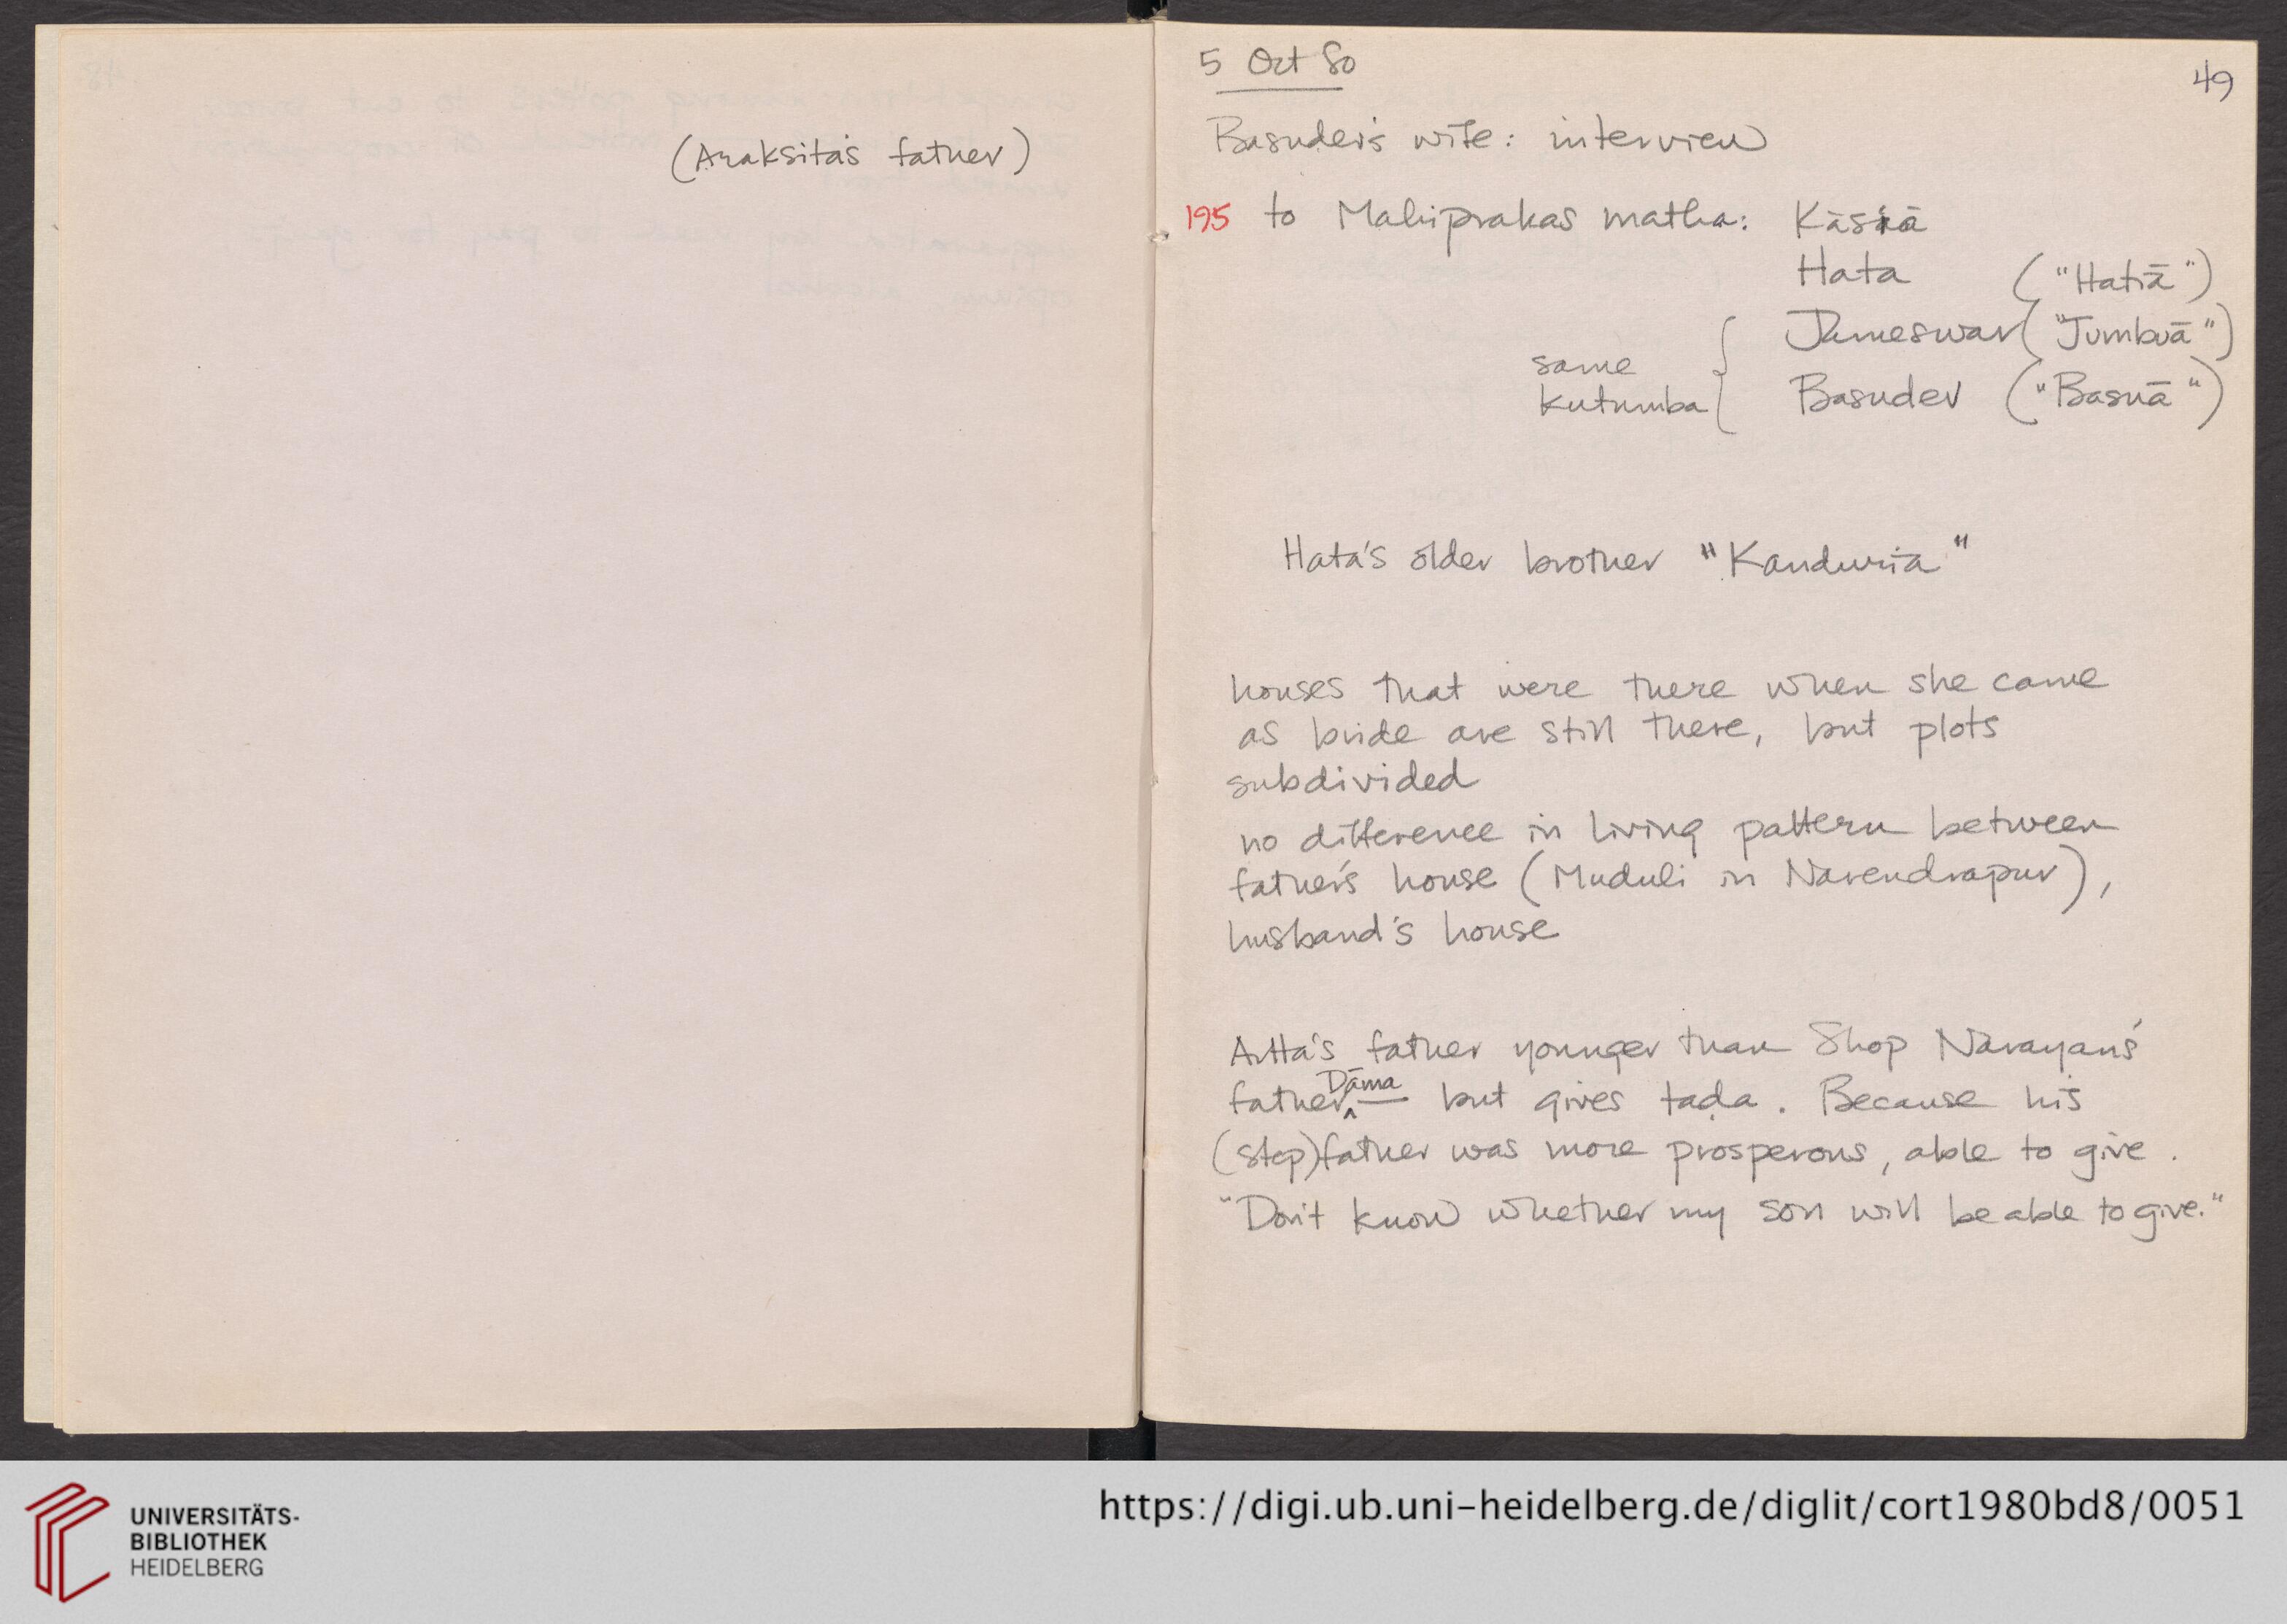 (Araksita's father)
5 Oct 80
49
Basudev's wife: interview
195 to Mahiprakas matha: Kāsiā
Hata ("Hatiā")
Jameswar ("Jumbuā")
same
kutumba { Basudev ("Basuā")
Hata's older brother "Kanduria"
houses that were there when she came
as bride are still there, but plots
subdivided
no difference in living pattern between
father's house (Muduli in Narendrapur),
husband's house
Artta's father younger than Shop Narayan's
father Dāma — but gives tada. Because his
(step)father was more prosperous, able to give.
"Don't know whether my son will be able to give."
UNIVERSITÄTS-
BIBLIOTHEK
HEIDELBERG
https://digi.ub.uni-heidelberg.de/diglit/cort1980bd8/0051